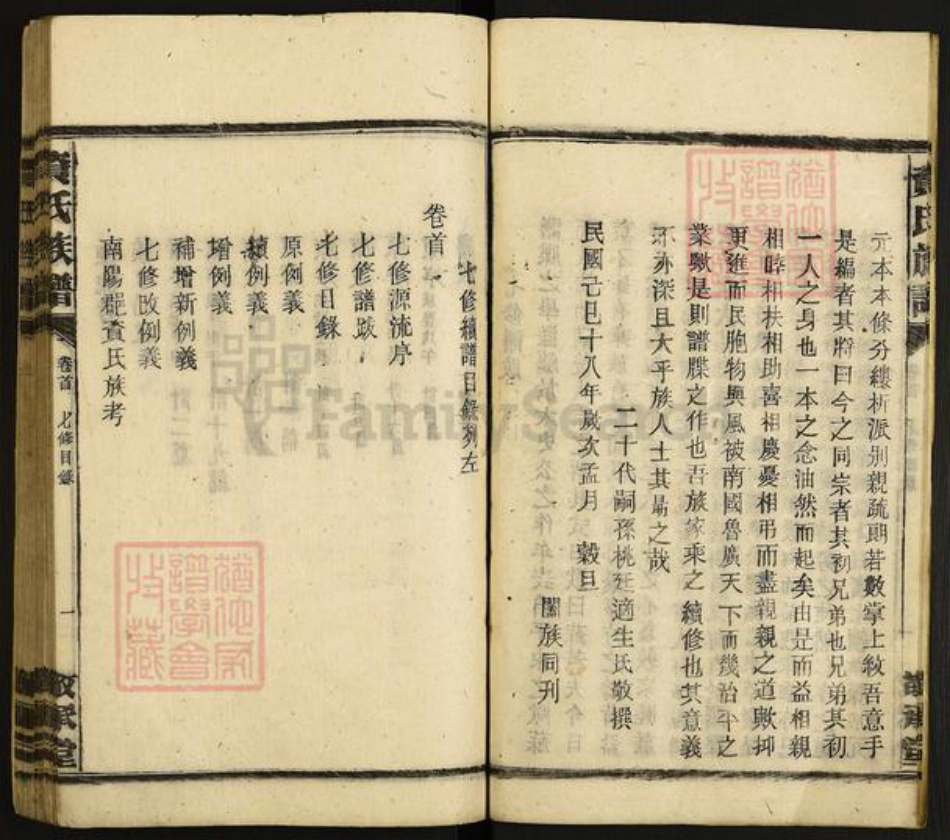 元本本條分縷析派別親疏明若數掌上紋吾意手
是編者其將曰今之同宗者其初兄弟也兄弟其初
一人之身也一本之念油然而起矣由是而益相親
相睦相扶相助喜相慶憂相弔而盡親親之道歟抑
更進而民胞物與風被南國魯廣天下而幾治平之
業歟是則譜牒之作也吾族家乘之續修也其意義
不亦深且大乎族人士其勗之哉
二十代嗣孫桃廷適生氏敬撰
民國己巳十八年歲次孟月 穀旦 闔族同刊
七修續譜目錄列左
卷首
七修源流序
七修譜跋
七修目錄
原例義
續例義
增例義
補增新例義
七修改例義
南陽郡賁氏族考
賁氏族譜
卷首 七修目錄
一
敬承堂
猶他家譜學會收藏
猶他家譜學會收藏
FamilySearch